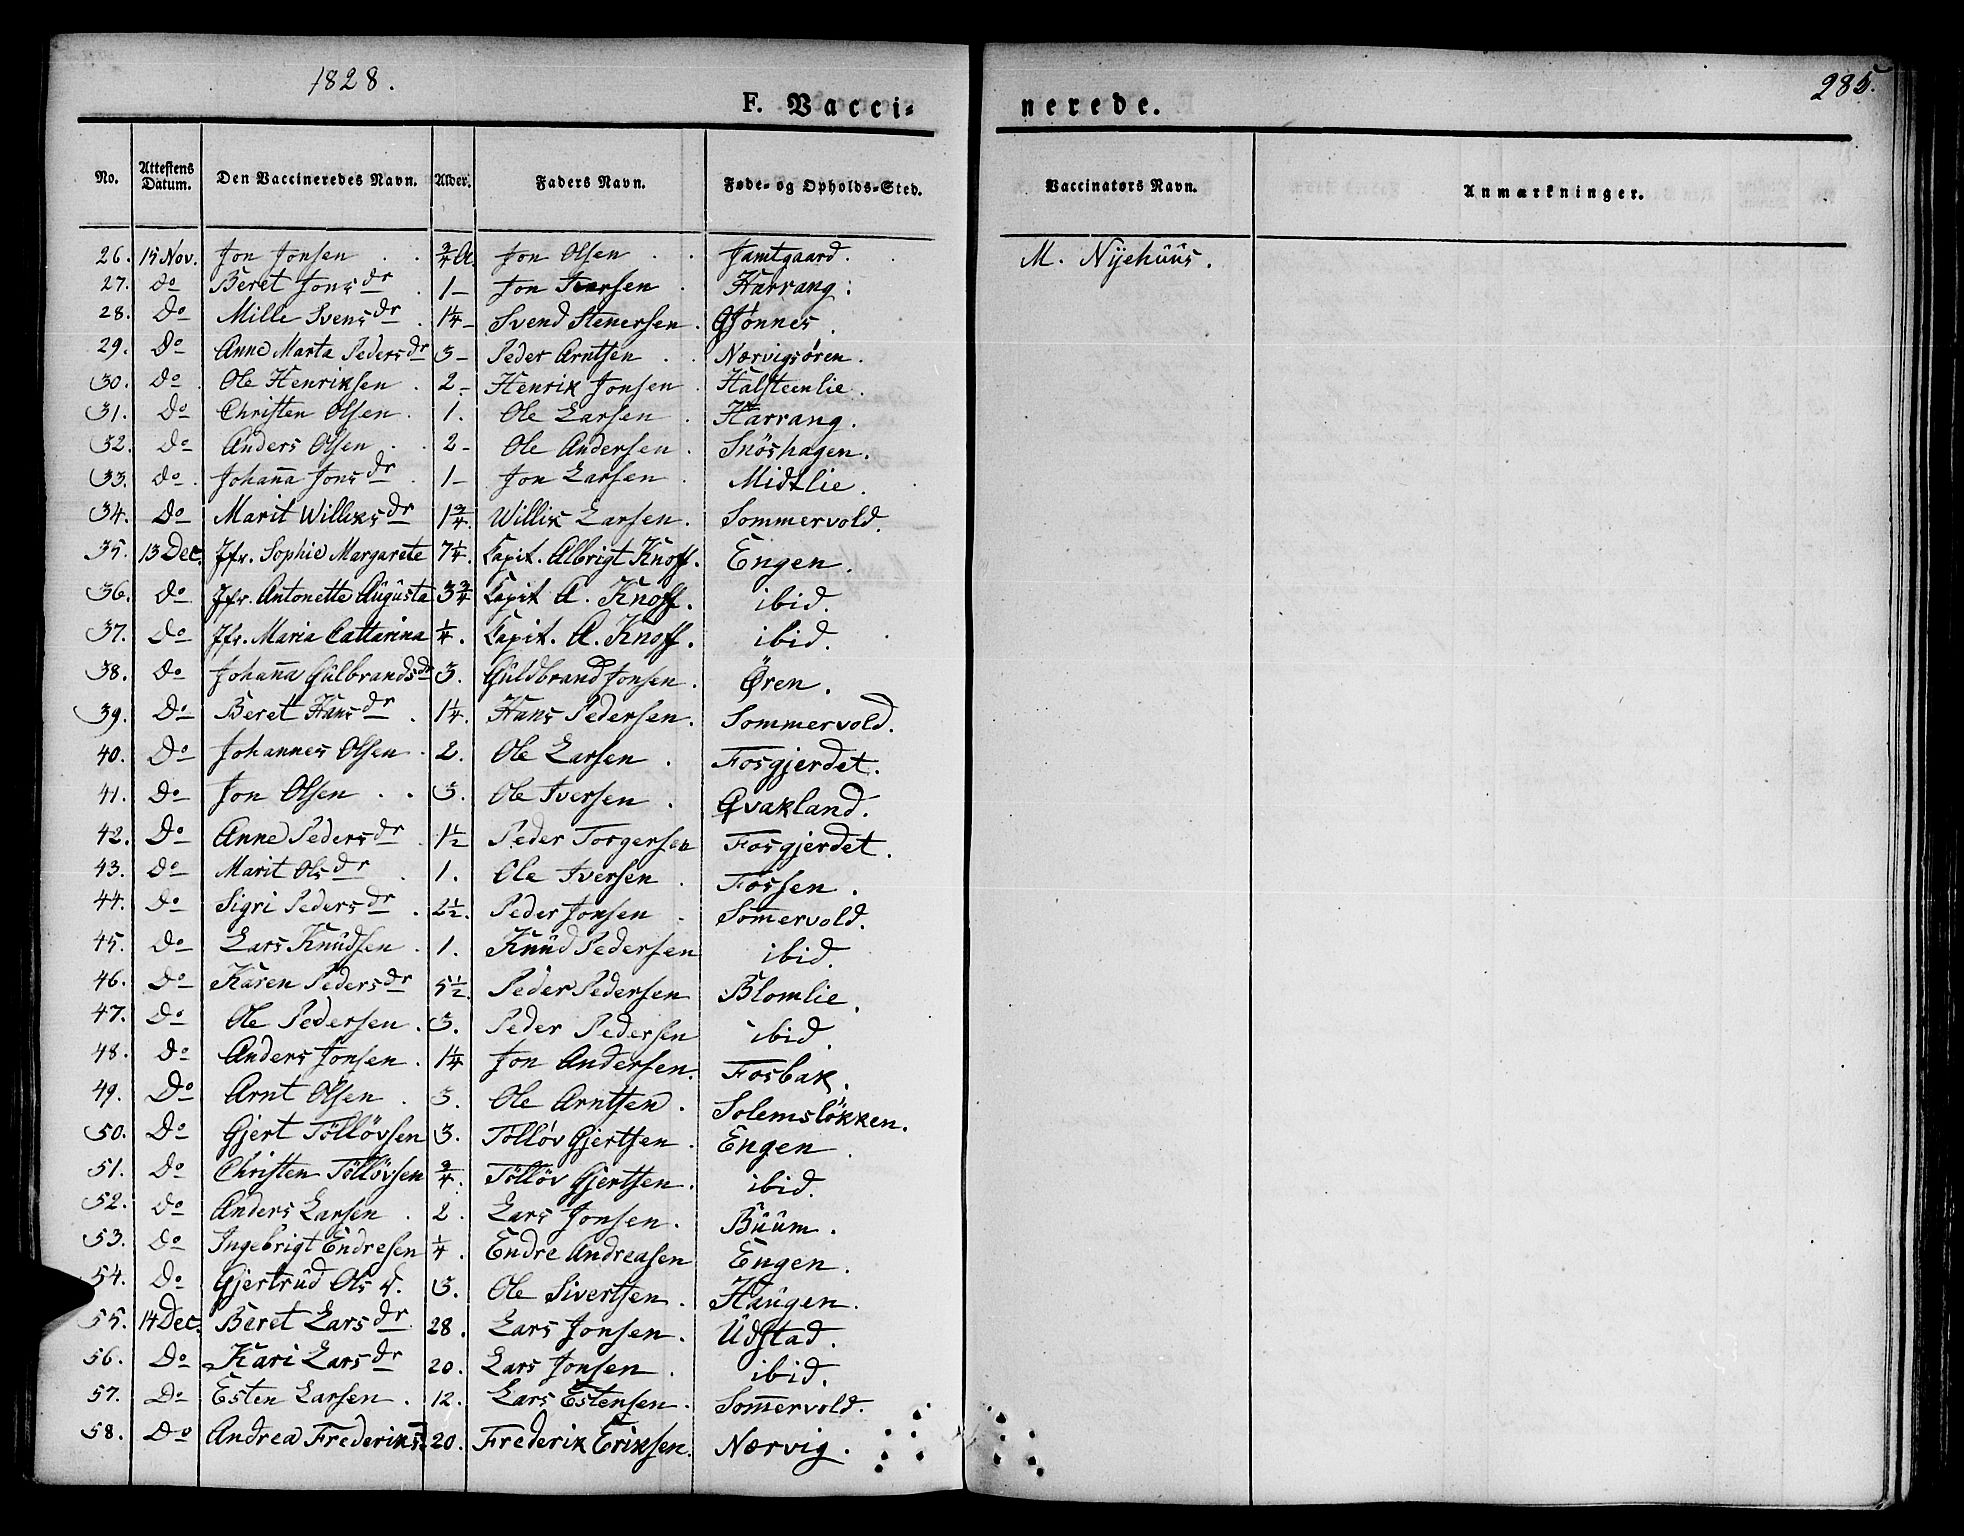 1828.
285.
F. Vacci-
nerede.
No. Attestens Datum. Den Vaccineredes Navn. Alder. Faders Navn. Føde- og Opholds-Sted. Vaccinators Navn. Anmærkninger.
26. 15 Nov. Jon Jonsen . . 3/4 A. Jon Olsen . . Jamtgaard. M. Nijehuus.
27. do Beret Jonsdr . 1- Jon Iversen . Harrang.
28. Do Mille Svensdr . 1 1/4- Svend Stenersen . Gjønnes.
29. Do Anne Marta Pedersdr 3- Peder Arntsen . . Nærvigsøren.
30. Do . Ole Henriksen . 2- Henrik Jonsen . Halsteenlie.
31. Do Christen Olsen . 1. Ole Larsen . Harrang.
32. Do Anders Olsen . . 2- Ole Andersen . Snöshagen.
33. do . Johanna Jonsdr . 1- Jon Larsen . Midtlie.
34. Do Marit Williksdr 1 3/4. Willik Larsen . Sommervold.
35. 13 Dec. Jfr. Sophie Margarete 7 1/4. Capit. Albrigt Knoff. Engen.
36. do Jfr. Antonette Augusta 3 3/4 Capit A. Knoff. ibid.
37. do Jfr. Maria Cattarina 1/4. Capit. A. Knoff. ibid.
38. do Johanna Gulbrandsdr 3. Guldbrand Jonsen . Øren.
39. Do Beret Hansdr . 1 1/4. Hans Pedersen. Sommervold.
40. Do Johannes Olsen . 2. Ole Larsen . Fosgjerdet.
41. Do Jon Olsen . . 3. Ole Iversen . Qvakland.
42. Do Anne Pedersdr . 1 1/2 Peder Torgersen Fosgjerdet.
43. Do Marit Olsdr . 1. Ole Iversen . Fossen.
44. Do Sigri Pedersdr . 2 1/2. Peder Jonsen . Somervold.
45. Do Lars Knudsen . 1. Knud Pedersen ibid.
46. Do Karen Pedersdr 5 1/2. Peder Pedersen Blomlie.
47. Do Ole Pedersen . 3. Peder Pedersen ibid.
48. Do Anders Jonsen . 1 1/4 Jon Andersen. Fosbak.
49. Do Arnt Olsen . 3. Ole Arntsen . Solemslökken.
50. Do Gjert Tölløvsen 3. Tölløv Gjertsen . Engen.
51. Do Christen Tölløvsen 3/4. Tölløv Gjertsen . ibid.
52. Do Anders Larsen . 2. Lars Jonsen . Buum.
53. Do Ingebrigt Endresen 1/4. Endre Andreasen Engen.
54. Do Gjertrud Ols d. 3. Ole Sivertsen . Haugen.
55. 14 Dec. Beret Larsdr . 28. Lars Jonsen . Udstad.
56. Do Kari Larsdr 20. Lars Jonsen . ibid.
57. Do Esten Larsen . 12. Lars Estensen . Somervold.
58. Do Andrea Frederiks 20. Frederik Eriksen. Nærvig.